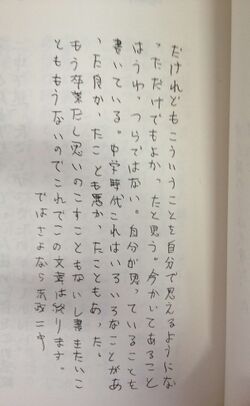 だけれどもこういうことを自分で思えるようにな
っただけでもよかったと思う。今かいてあること
はうわっつらではない。自分が思っていることを
書いている。中学時代これはいろいろなことがあ
った良かったことも悪かったこともあった。
もう卒業だし思いのこすこともないし書きたいこ
とももうないのでこれでこの文章は終ります。
ではさよなら